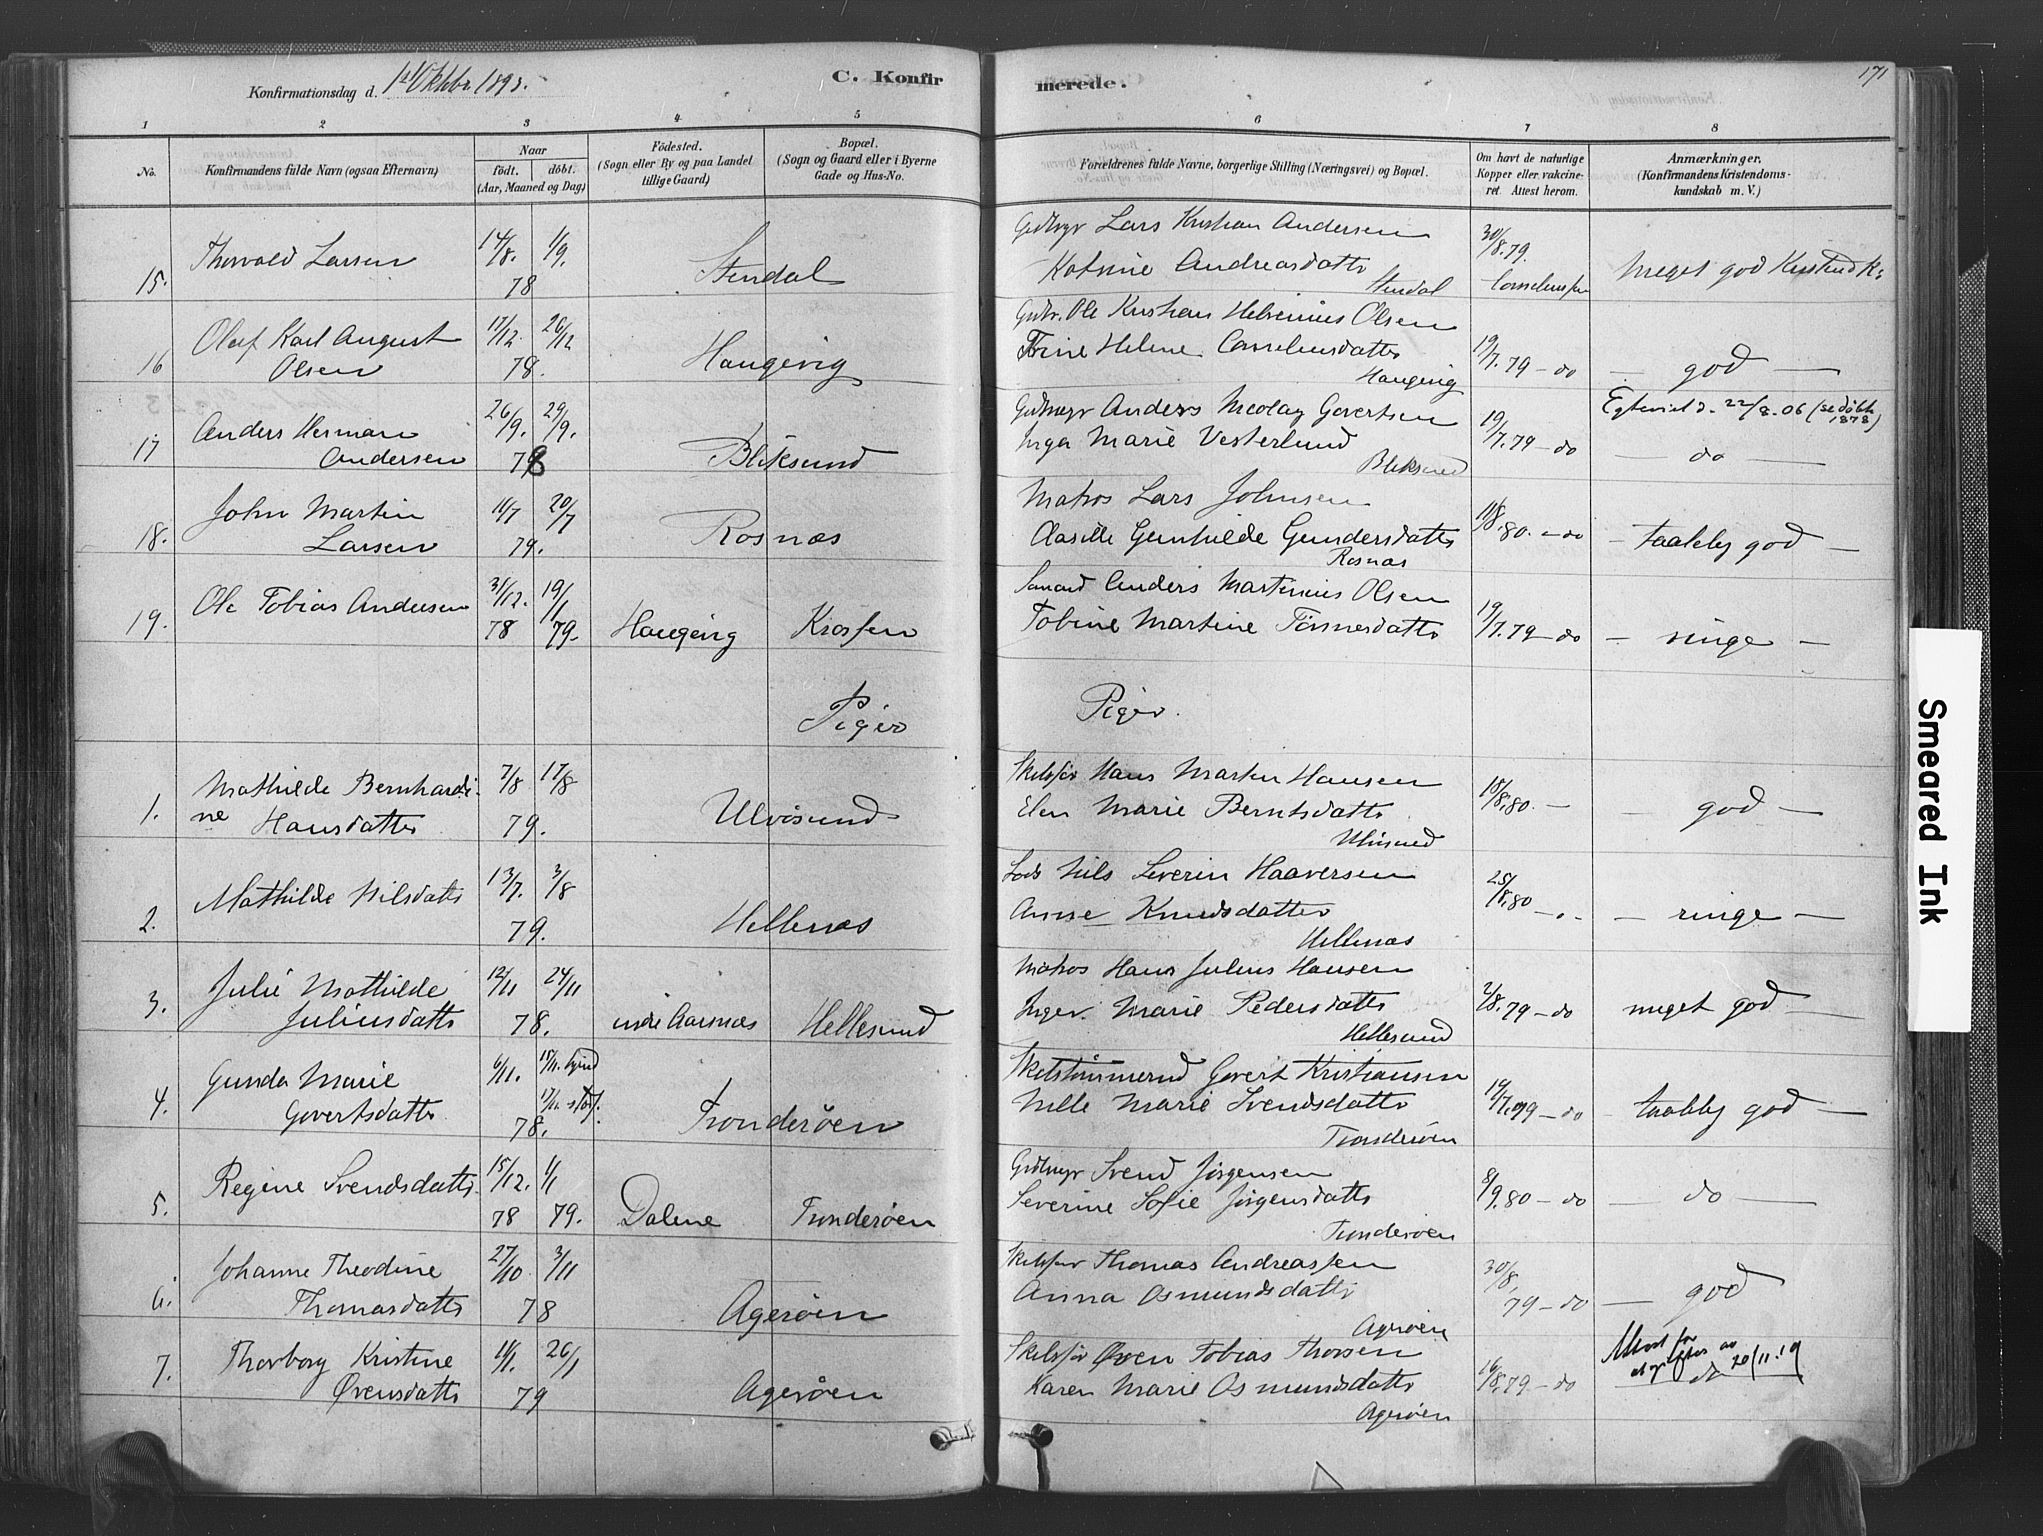 Konfirmationsdag d. 1ste Oktbr. 1893.
C. Konfir
merede.
171
1 2 3 4 5 6 7 8
No.
Konfirmandens fulde Navn (ogsaa Efternavn)
Naar
født. døbt.
(Aar, Maaned og Dag)
Fødested.
(Sogn eller By og paa Landet
tillige Gaard)
Bopæl.
(Sogn og Gaard eller i Byerne
Gade og Hus-No.
Foreldrenes fulde Navne, borgerlige Stilling (Næringsvei) og Bopæl.
Om havt de naturlige
Kopper eller vakcine-
ret Attest herom.
Anmærkninger.
(Konfirmandens Kristendoms-
kundskab m. V.)
15. Thorvald Larsen 14/8. 1/9. 78 Stendal
Lars Kristian Andersen
Katrine Andreasdatter
Stendal
30/8.79.
meget god
16 Oluf Karl August
Olsen
17/12. 26/12 78. Haugevig
Ole Kristian Olsen
Trine Helene Corneliusdatter
Haugevig
19/7.79 – do
god
17 Anders Herman
Andersen
26/9. 29/9. 78 Bliksund
Anders Nicolay Govertsen
Inga Marie Vesterlund
Bliksund
19/7.79 – do
22/8.06 (se døbte
1878)
do
18. John Martin
Larsen
16/7 20/7 79. Rosnæs
Matros Lars Johnsen
Gunhilde Gundersdatter
Rosnæs
11/8.80. – do
taalelig god
19. Ole Tobias Andersen 31/12. 78 19/1 79. Haugevig Krossen
Anders Martinius Olsen
Tobine Martine Tønnesdatter
19/7.79 – do
ringe
Piger
Piger.
1. Mathilde Bernhardi-
ne Hansdatter
7/8 17/8 79. Ulvøsund
Hans Martin Hansen
Elen Marie Berntsdatter
18/8.80. –
god
2. Mathilde Nilsdatter 13/7. 3/8 79. Hellenæs
Lods Nils Severin Haaversen
Anne Knudsdatter
Hellenæs
25/8.80
ringe
3. Julie Mathilde
Juliusdatter
12/11 24/11 78. indre Aarsnæs Hellesund
Matros Hans Julius Hansen
Inger Marie Pedersdatter
Hellesund
2/8.79 – do
meget god
4. Gunda Marie
Govertsdatter
6/11. 78. Trønderøen
Skibstømmermd Govert Kristiansen
Nille Marie Svendsdatter
Trønderøen
19/7.79 – do
taalelig god
5. Regine Svendsdatter 15/12. 78 1/1 79. Dalene Trønderøen
Svend Jørgensen
Severine Sofie Jørgensdatter
Trønderøen
8/9.80 – do
do
6. Johanne Theodine
Thomasdatter
27/10 3/11 78 Agerøen
Skibsfør Thomas Andreassen
Anna Osmundsdatter
Agerøen
30/8.79 – do
god
7. Thorborg Kristine
Øvensdatter
11/1. 26/1 79 Agerøen
Skibsfør Øven Tobias Thorsen
Karen Marie Osmundsdatter
Agerøen
16/8.79 – do
20/11.19
do
Smeared Ink